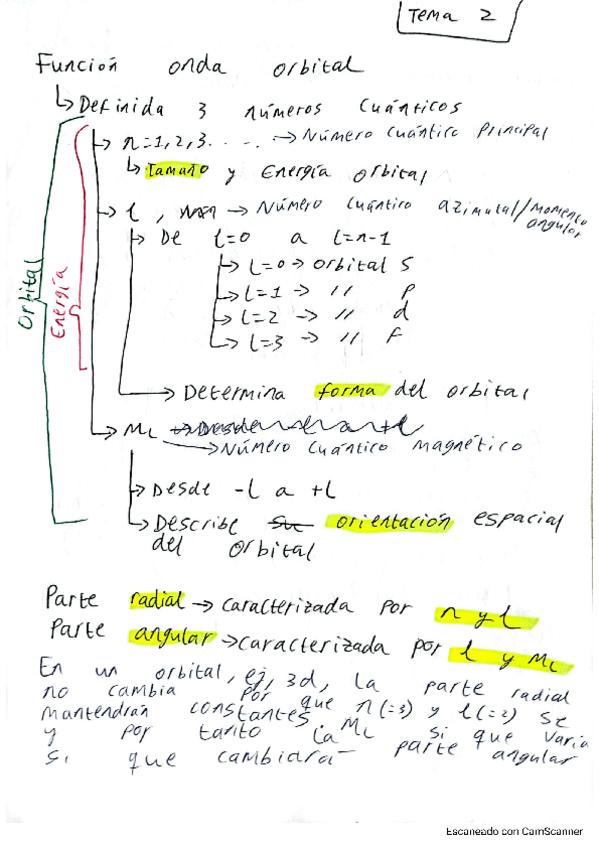 Tema 2
Función onda orbital
↳Definida 3 números cuánticos
→ n=1,2,3..... → Número cuántico principal
↳ tamaño y Energía orbital
→ l, → Número cuántico azimutal/momento angular
→ De l=0 a l=n-1
→ l=0 → orbital s
→ l=1 → // p
→ l=2 → // d
→ l=3 → // f
→ Determina forma del orbital
→ ml
→ Número cuántico magnético
→ Desde -l a +l
→ Describe orientación espacial
del orbital
Orbital
Energía
Parte radial → caracterizada por n y l
Parte angular → caracterizada por l y ml
En un orbital, ej, 3d, la parte radial
no cambia por que n(=3) y l(=2) se
mantendrán constantes. ml si que varia
y por tanto la parte angular
si que cambiará
Escaneado con CamScanner